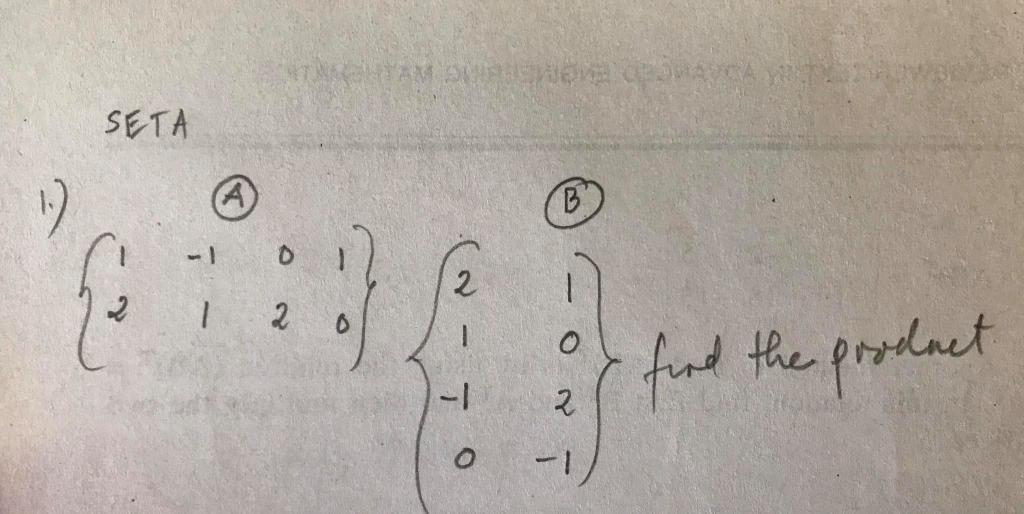 SET A
1.) A B
1 -1 0 1
2 1 2 0
2 1
1 0
-1 2
0 -1
find the product